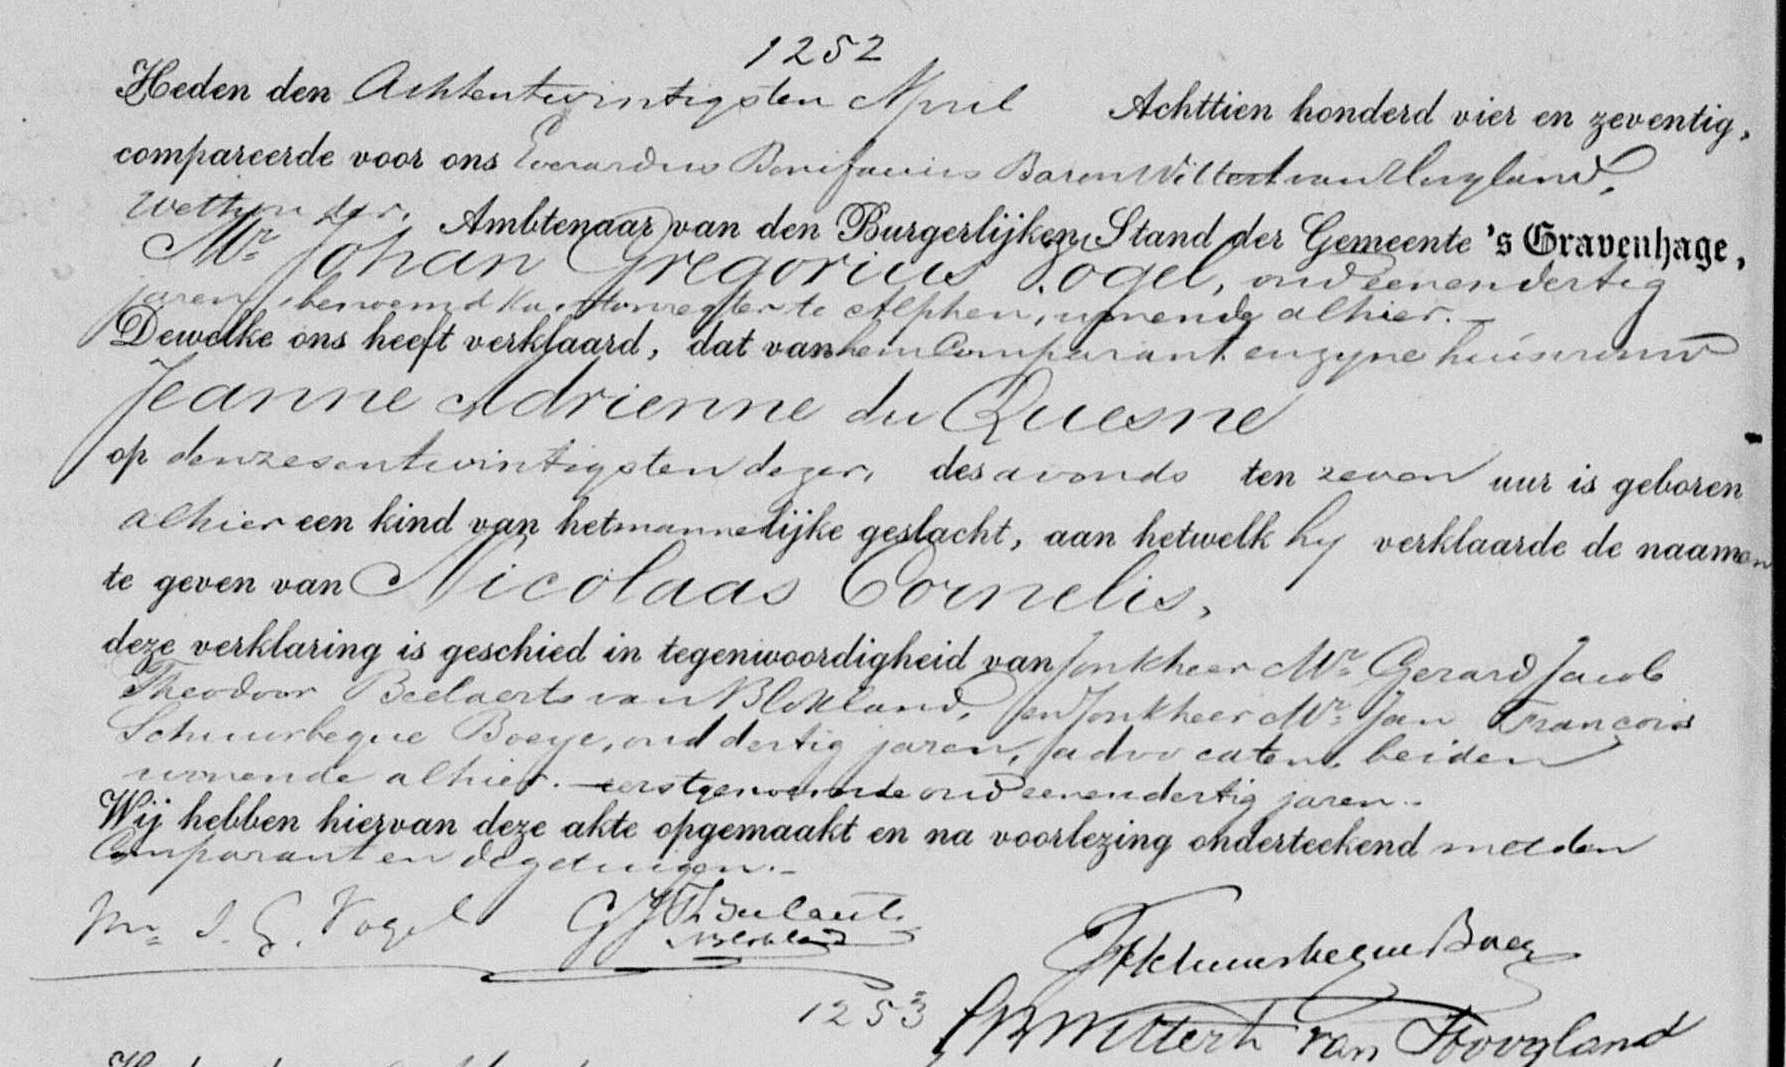 1252
Heden den Achtentwintigsten April Achttien honderd vier en zeventig,
compareerde voor ons Everardus Bonifacius Baron Wittert van Hoogland,
Wethouder, Ambtenaar van den Burgerlijken Stand der Gemeente 's Gravenhage,
Mr. Johan Gregorius Vogel, oud eenendertig
jaren, benoemd Kantonregter te Alphen, wonende alhier.
Dewelke ons heeft verklaard, dat van hem Comparant en zyne huisvrouw
Jeanne Adrienne du Quesne
op den zesentwintigsten dezer, des avonds ten zeven uur is geboren
alhier een kind van het mannelijke geslacht, aan hetwelk hy verklaarde de naamen
te geven van Nicolaas Cornelis,
deze verklaring is geschied in tegenwoordigheid van Jonkheer Mr. Gerard Jacob
Theodoor Beelaerts van Blokland, en Jonkheer Mr. Jan François
Schuurbeque Boeye, oud dertig jaren, advocaten, beiden
wonende alhier. — eerstgenoemde oud eenendertig jaren.
Wij hebben hiervan deze akte opgemaakt en na voorlezing onderteekend met den
Comparant en de getuigen.
Mr. J. G. Vogel GJTh Beelaerts
v Blokland
JF Schuurbeque Boeye
1253 EB Wittert van Hoogland